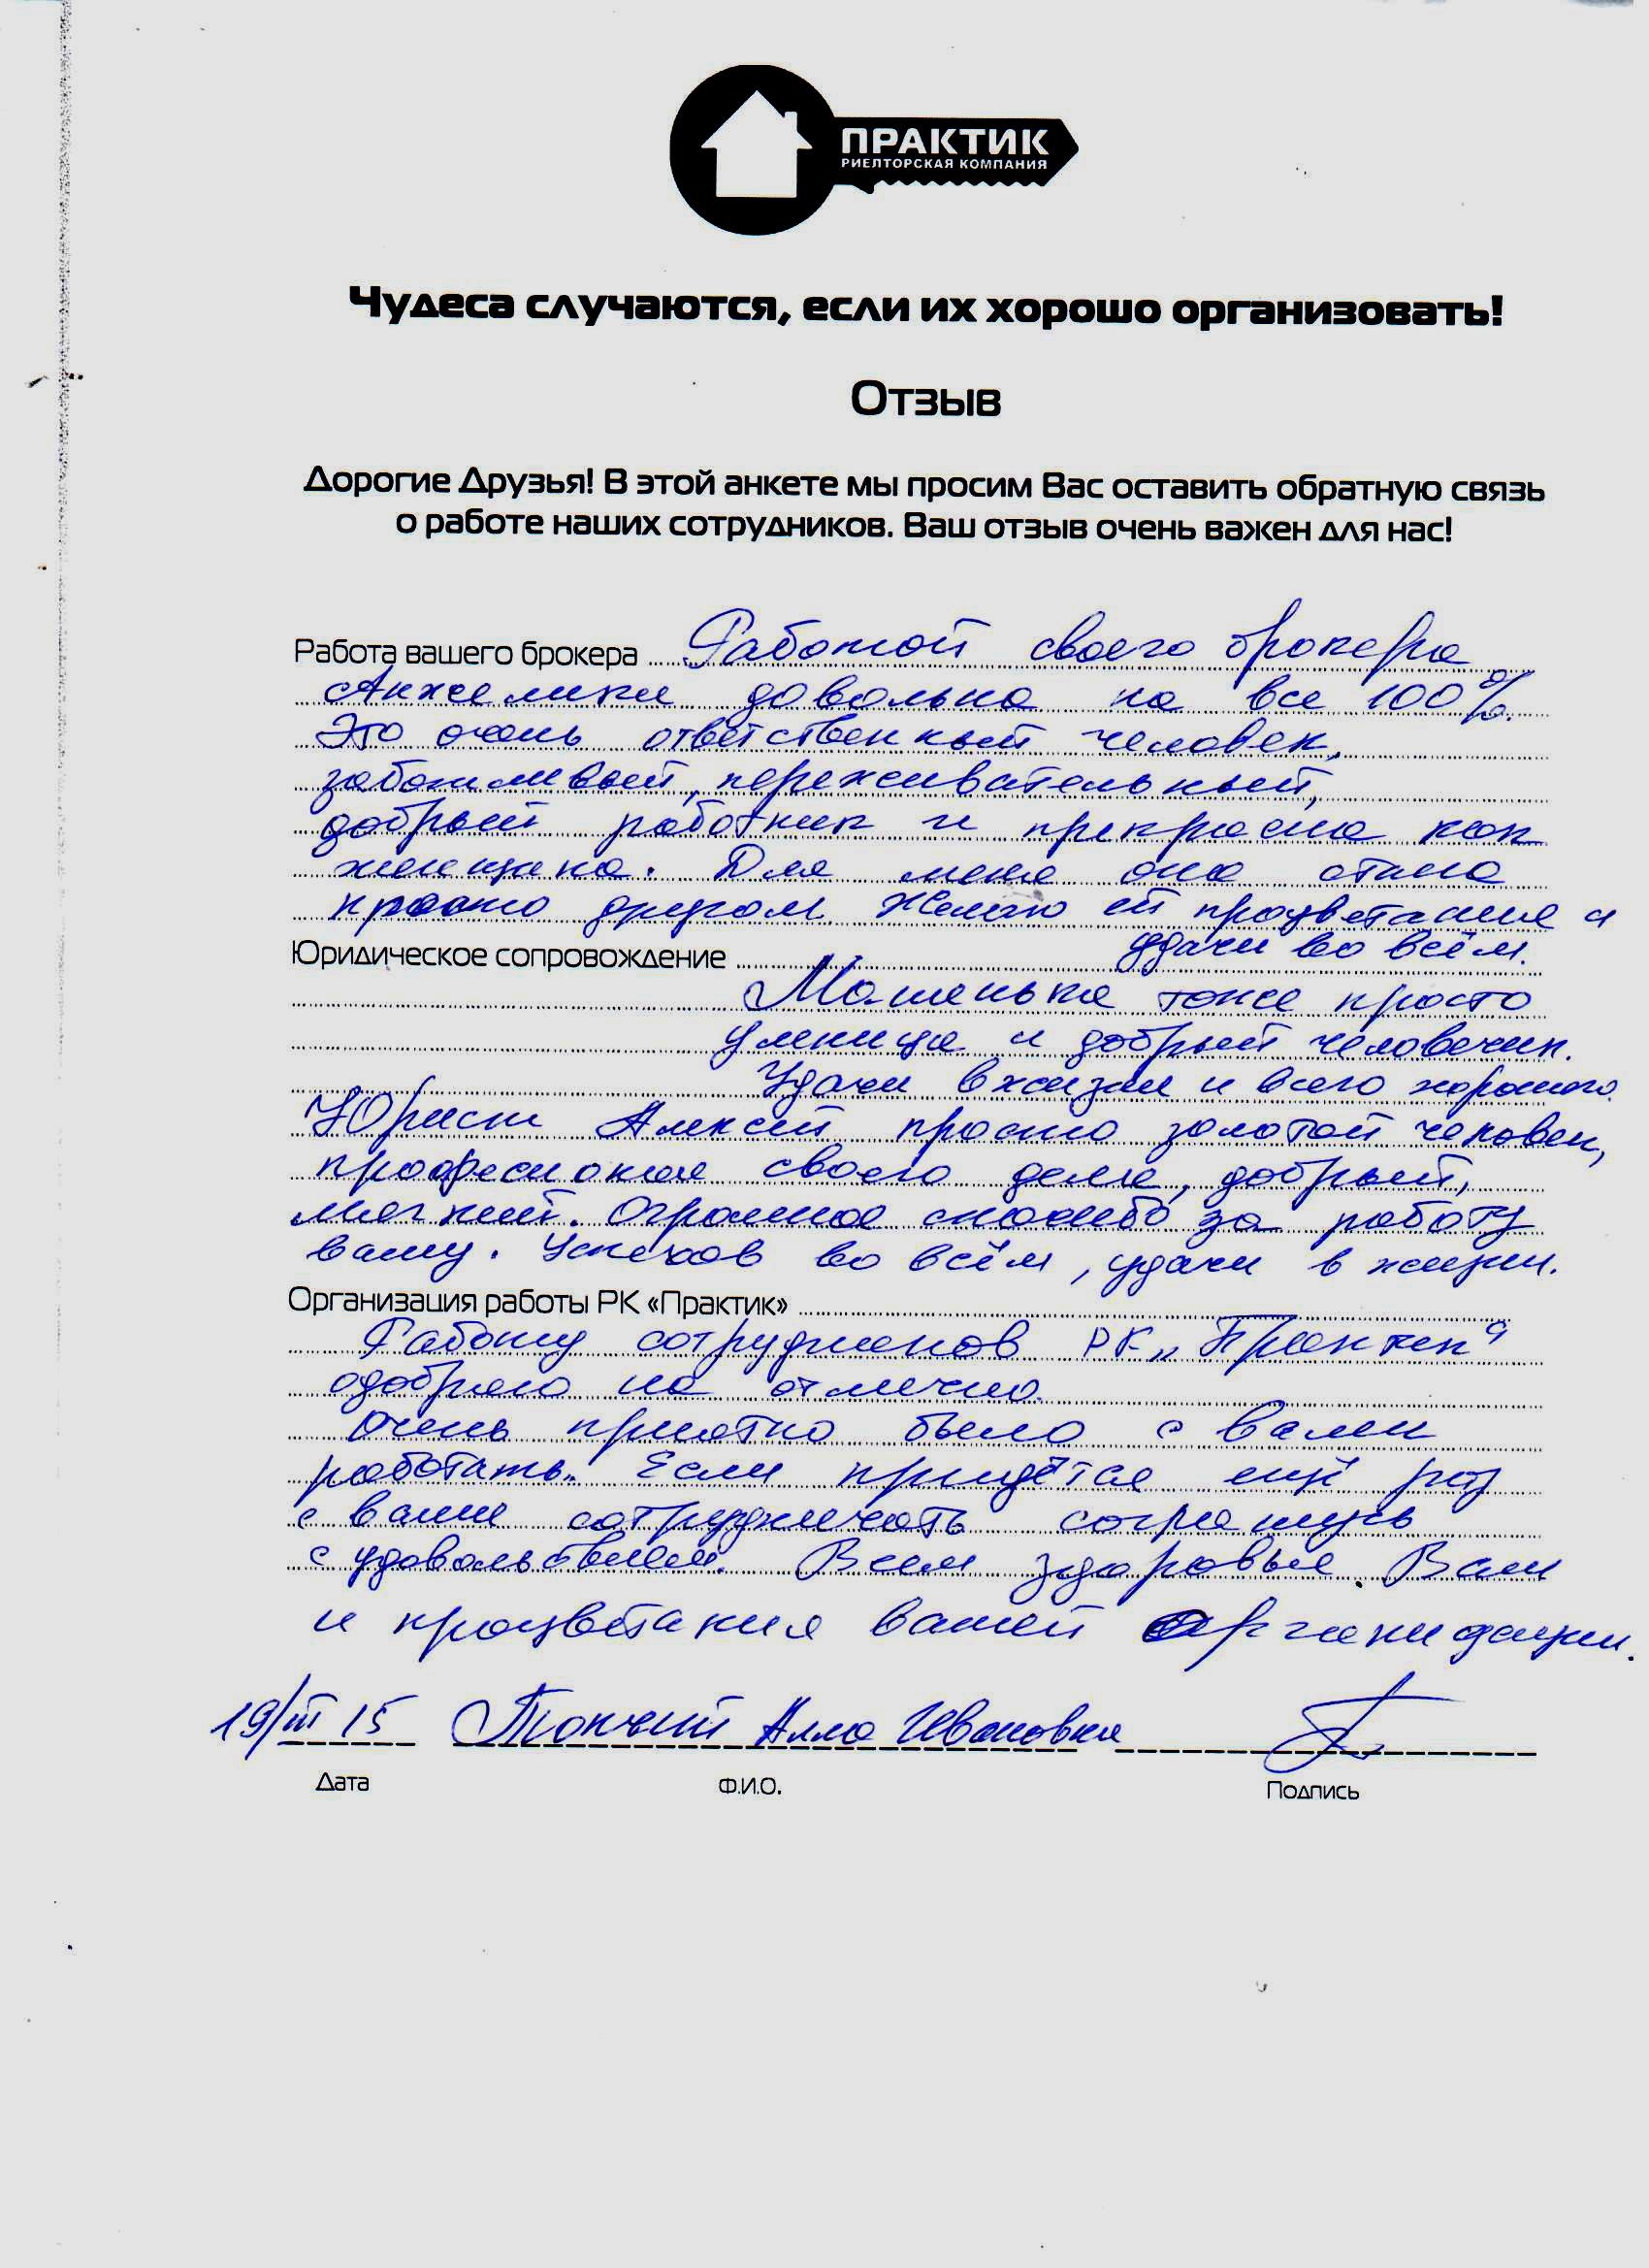 ПРАКТИК
РИЕЛТОРСКАЯ КОМПАНИЯ
Чудеса случаются, если их хорошо организовать!
Отзыв
Дорогие Друзья! В этой анкете мы просим Вас оставить обратную связь
о работе наших сотрудников. Ваш отзыв очень важен для нас!
Работа вашего брокера Работой своего брокера
Анжелики довольна на все 100%.
Это очень ответственный человек,
заботливый, переживательный,
добрый работник и прекрасна как
женщина. Для меня она стала
просто другом Желаю ей процветания и
удачи во всём.
Юридическое сопровождение
Машенька тоже просто
умница и добрый человечик.
Удачи в жизни и всего хорошего.
Юрист Алексей просто золотой человек,
професионал своего дела, добрый,
мягкий. Огромное спасибо за работу
вашу. Успехов во всём, удачи в жизни.
Организация работы РК «Практик»
Работу сотрудников РК „Практик“
одобряю на отлично.
Очень приятно было с вами
работать. Если придётся ещё раз
с вами сотрудничать соглашусь
с удовольствием. Всем здоровья Вам
и процветания вашей организации.
19/III 15 Алла Ивановна
Дата Ф.И.О. Подпись